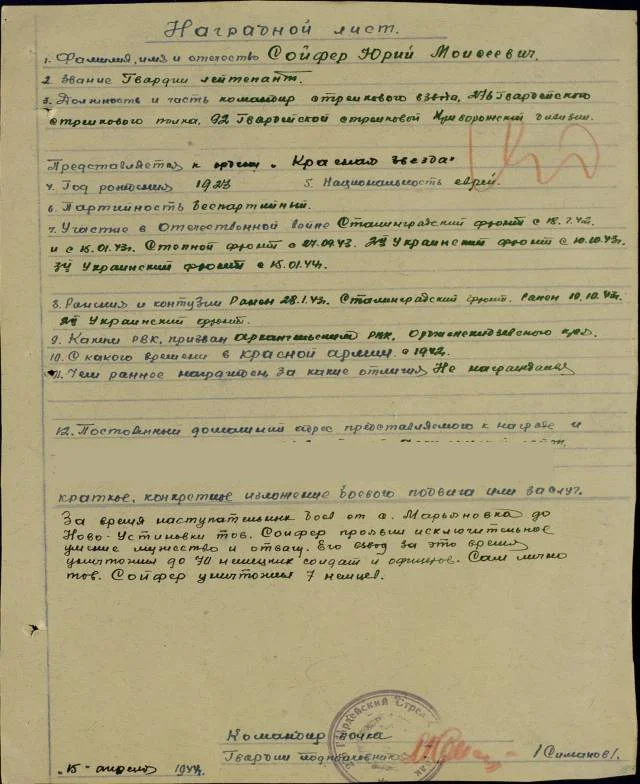 Наградной лист.
1. Фамилия, имя и отчество Сойфер Юрий Моисеевич.
2. Звание Гвардии лейтенант.
3. Должность и часть командир стрелкового взвода, 276 Гвардейского
стрелкового полка, 92 Гвардейской стрелковой Криворожской дивизии.
Представляется к ордену "Красная звезда"
4. Год рождения 1923 5. Национальность еврей.
6. Партийность беспартийный.
7. Участие в Отечественной войне Сталинградский фронт с 18.7.42.
и с 15.01.43г. Степной фронт с 27.09.43. 2й Украинский фронт с 10.10.43г.
3й Украинский фронт с 15.01.44г.
8. Ранения и контузии Ранен 28.1.43г. Сталинградский фронт. Ранен 10.10.43г.
2й Украинский фронт.
9. Каким РВК, призван РВК, Орджоникидзевского
10. С какого времени в красной армии с 1942.
11. Чем раннее награжден, за какие отличия Не награждался
12. Постоянный домашний адрес представляемого к награде и
краткое, конкретное изложение боевого подвига или заслуг.
За время наступательных боев от с. Марьяновка до
Ново-Устиновки тов. Сойфер проявил исключительное
умение мужество и отвагу. Его взвод за это время
уничтожил до 70 немецких солдат и офицеров. Сам лично
тов. Сойфер уничтожил 7 немцев.
Командир полка
Гвардии подполковник /Симаков/.
"15" апреля 1944г.
Гвардейский Стрел